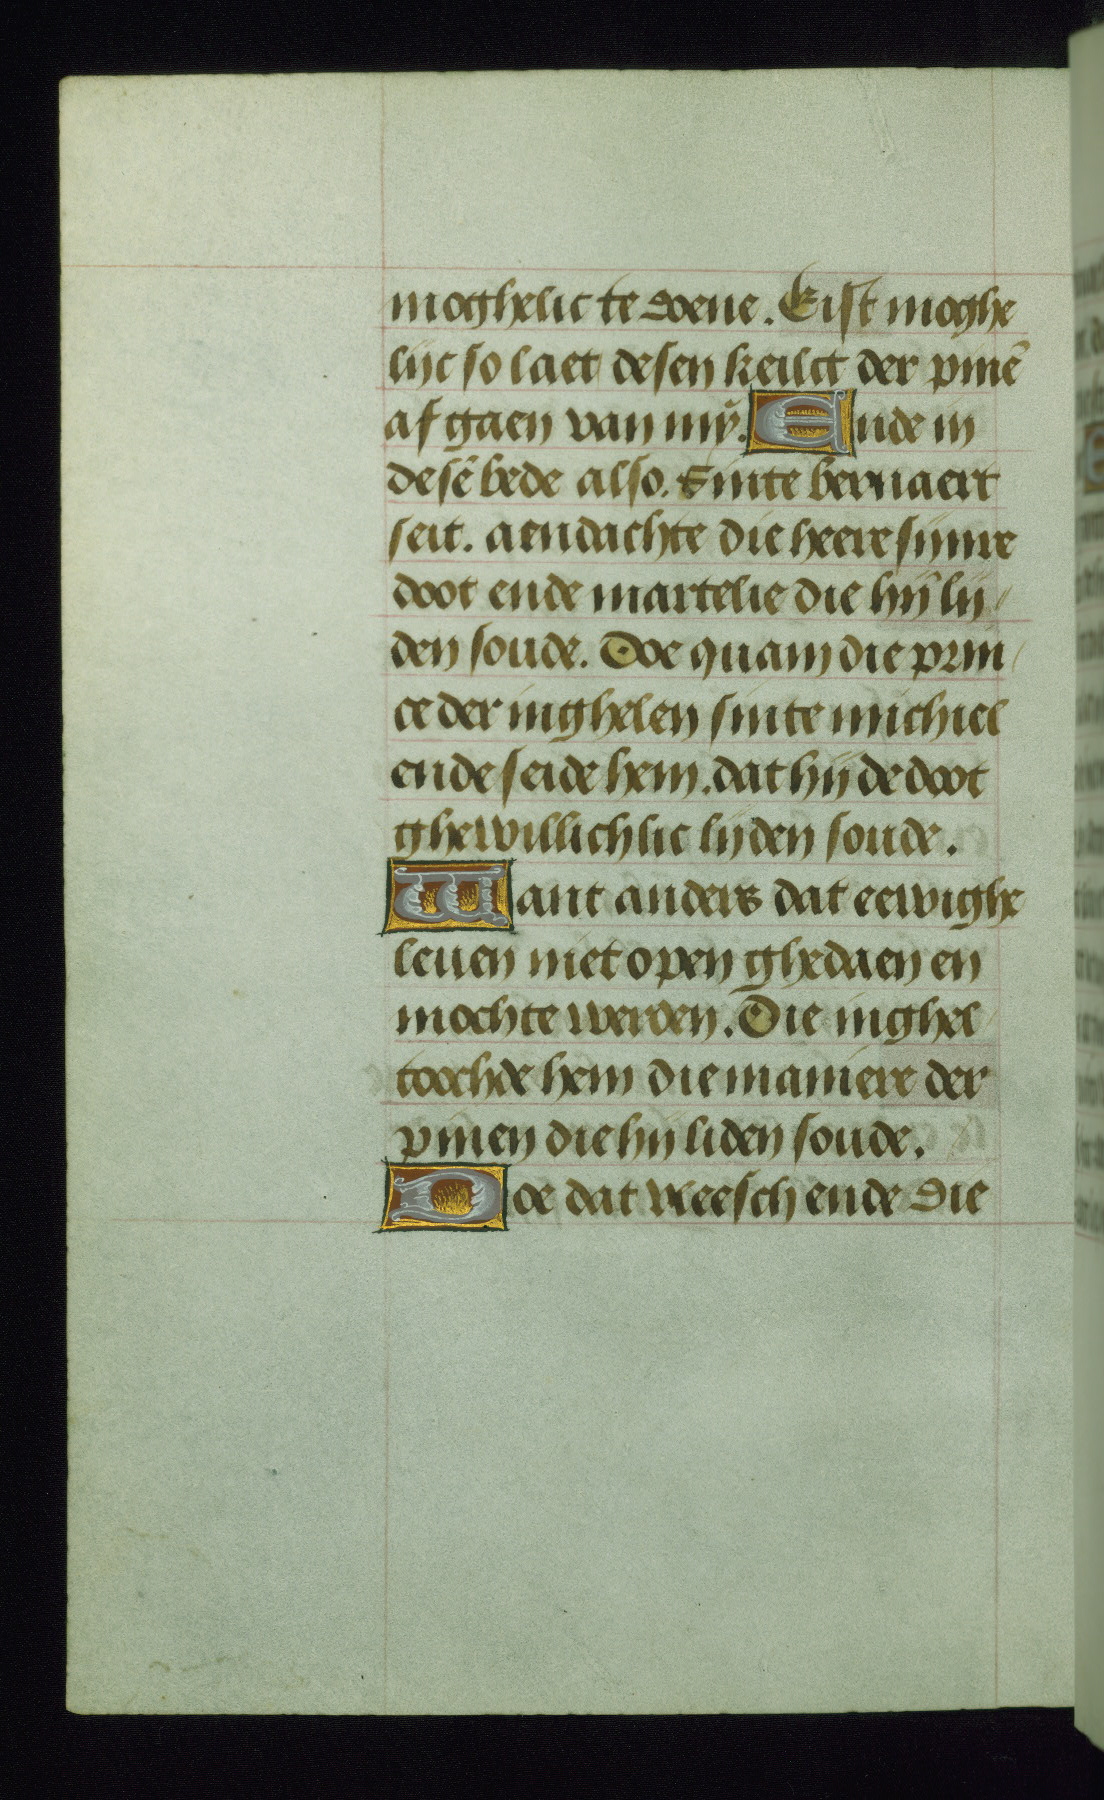 moghelic te doene. Eist moghe
lijc so laet desen keilct der pinē
af gaen van mij. Ende in
desē bede also. Sinte bernaert
seit. aendachte die heere sijnre
doot ende martelie die hij lij
den soude. Doe quam die prin
ce der inghelen sinte michiel
ende seide hem. dat hij de doot
ghewillichlic lijden soude.
Want anders dat eewighe
leuen niet open ghedaen en
mochte werden. Die inghel
toochde hem die maniere der
pinen die hij liden soude.
Doe dat vleesch ende die